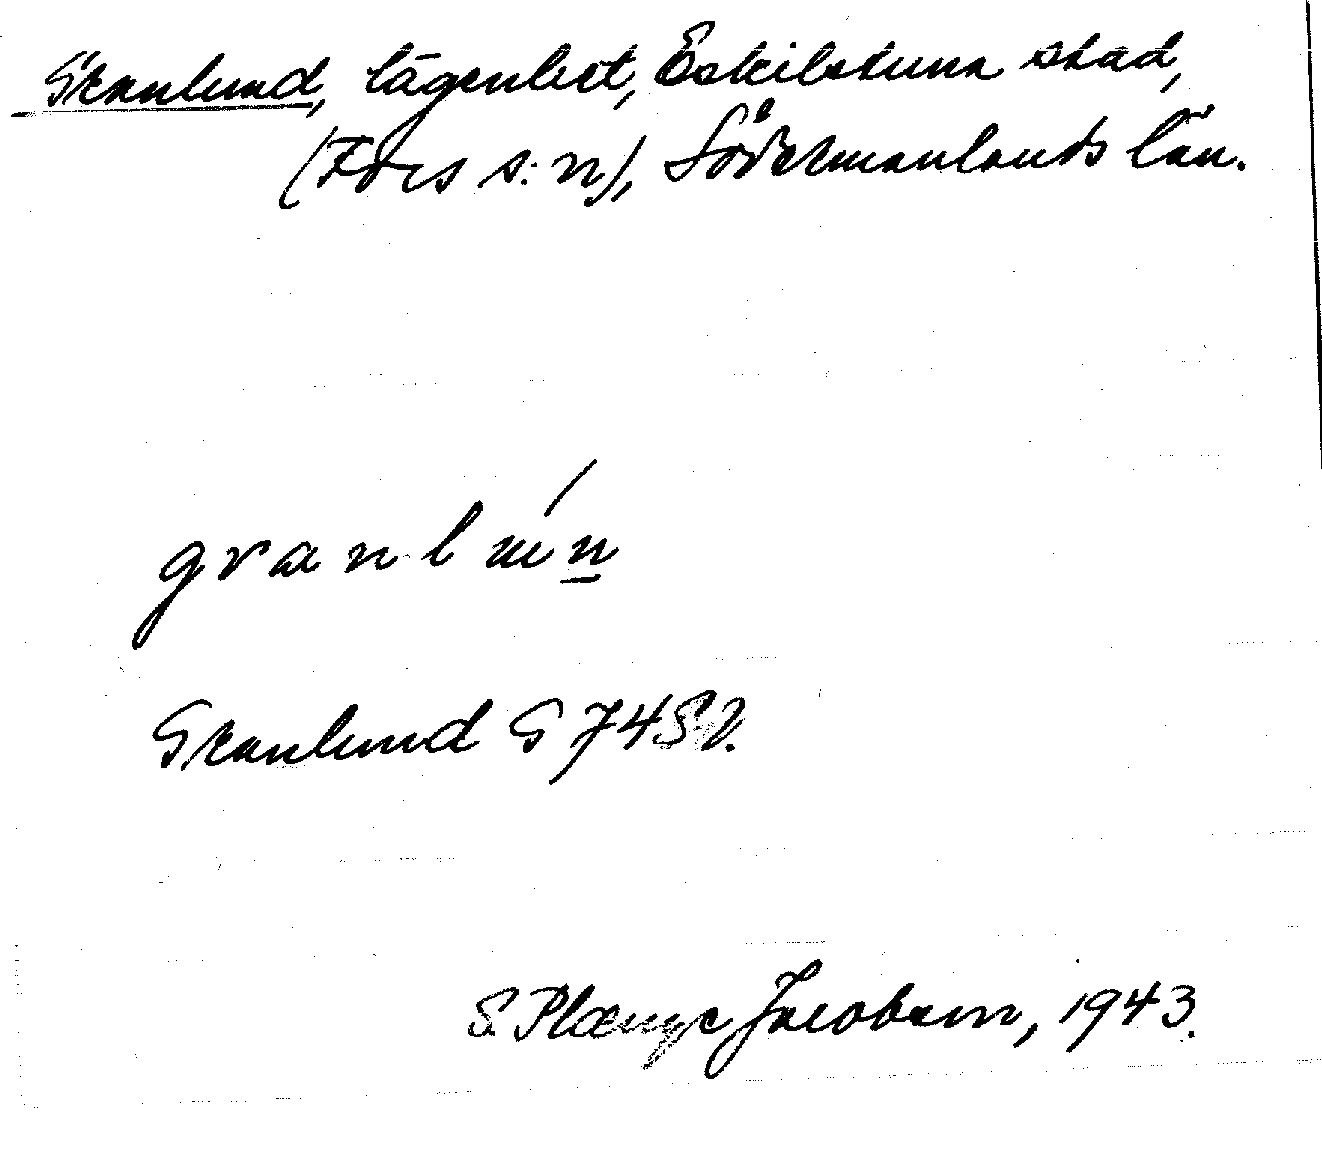 Granlund, lägenhet, Eskilstuna stad,
(Fors s:n), Södermanlands län.
granluń
Granlund G 74SV.
S. Plænge Jacobson, 1943.